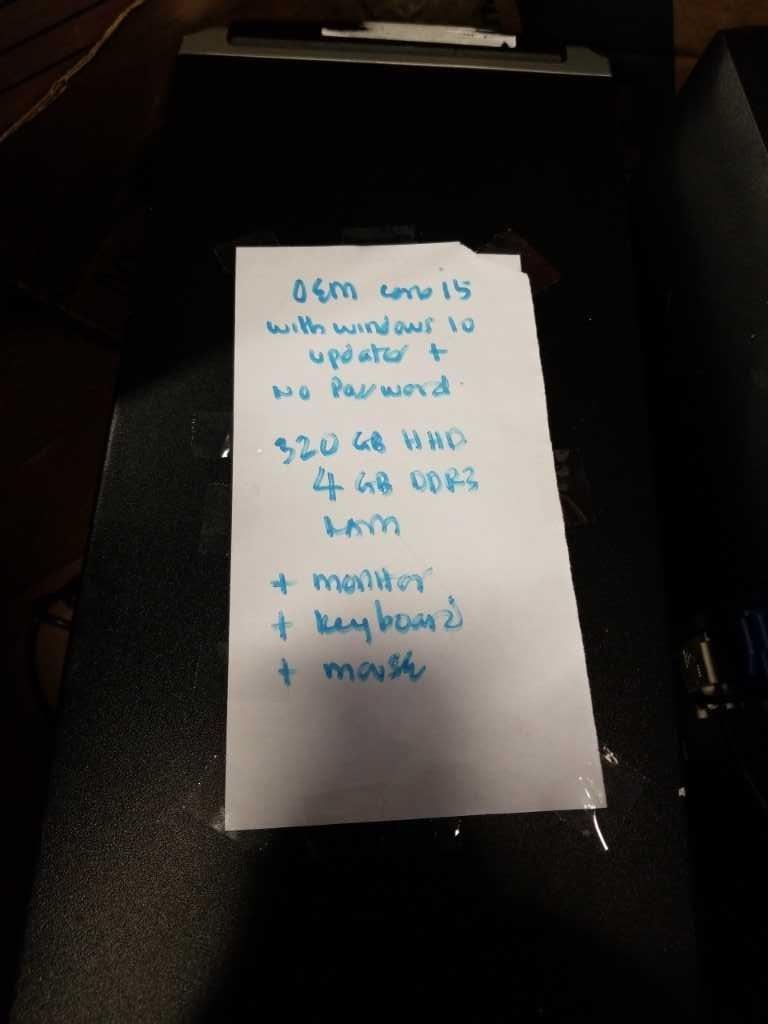 OEM core i5
with windows 10
updater +
No Password
320 GB HHD
4 GB DDR3
RAM
+ monitor
+ keyboard
+ mouse